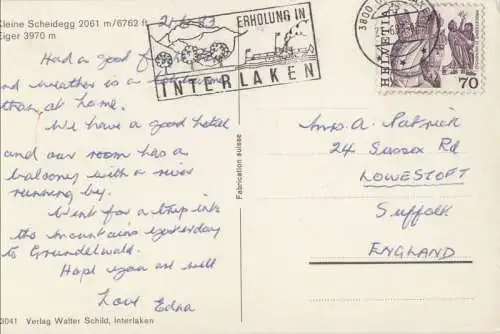 Kleine Scheidegg 2061 m/6762 ft.
Eiger 3970 m
21-6-83
Had a good
and weather is a
than at home.
We have a good hotel
and our room has a
balcony with a river
running by.
Went for a trip into
the mountains yesterday
to Grundelwald.
Hope you are well
Love Edna
3041 Verlag Walter Schild, Interlaken
Fabrication suisse
ERHOLUNG IN
INTERLAKEN
3800
HELVETIA
70
Mrs. A. Patrick
24 Sussex Rd
LOWESTOFT
Suffolk
ENGLAND